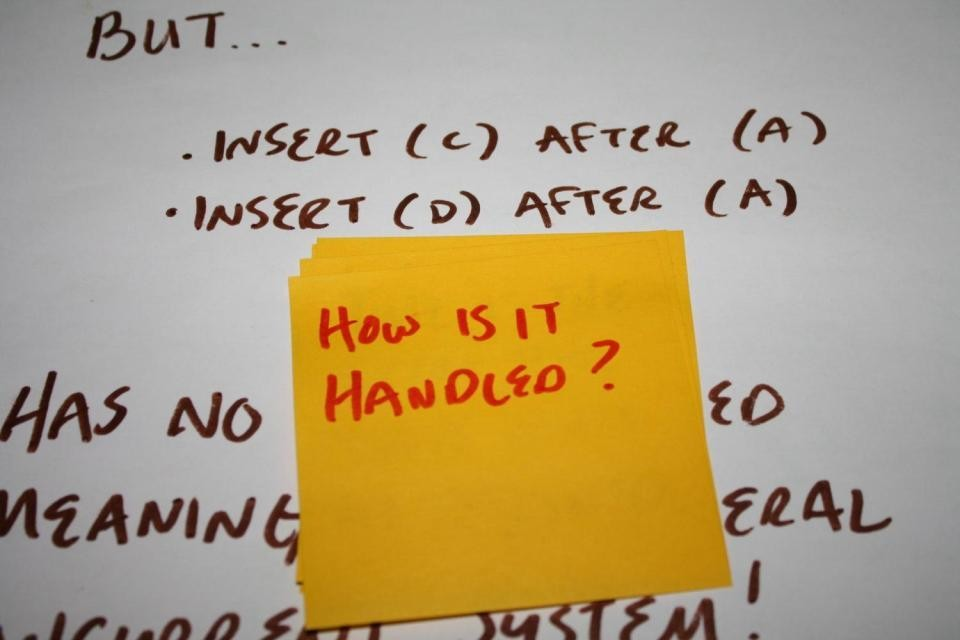 BUT...
. INSERT (C) AFTER (A)
. INSERT (D) AFTER (A)
HOW IS IT
HANDLED?
HAS NO ED
MEANING ERAL
SYSTEM!